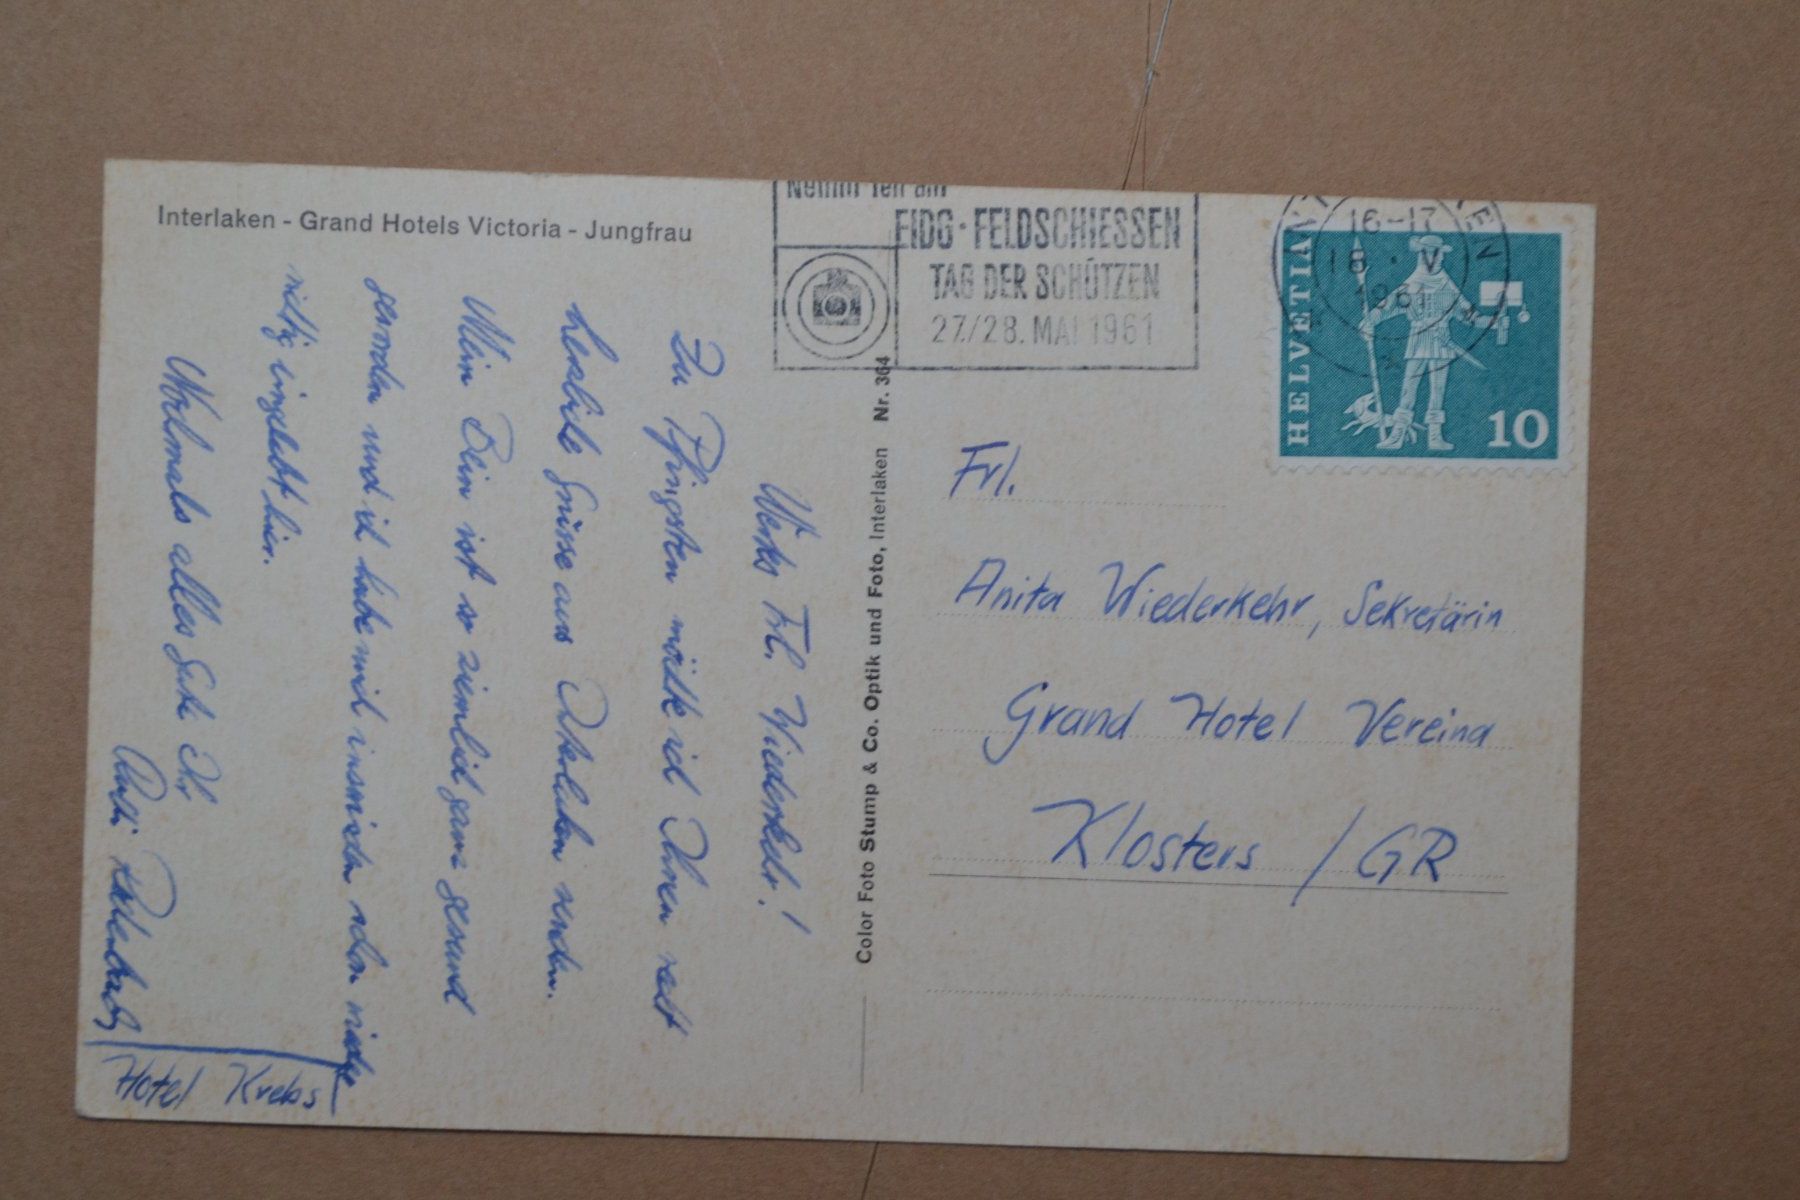 Interlaken - Grand Hotels Victoria - Jungfrau
Nehmt Teil am
EIDG. FELDSCHIESSEN
TAG DER SCHÜTZEN
27./28. MAI 1961
16-17
18. V
1961
HELVETIA
10
Werte Frl. Wiederkehr!
Zu Pfingsten möchte ich Ihnen recht
herzliche Grüsse aus Interlaken senden.
Mein Bein ist so ziemlich ganz gesund
geworden und ich habe mich inzwischen schon
richtig eingelebt hier.
Nochmals alles Gute Ihr
Hotel Krebs
Color Foto Stump & Co. Optik und Foto, Interlaken Nr. 364
Frl.
Anita Wiederkehr, Sekretärin
Grand Hotel Vereina
Klosters / GR